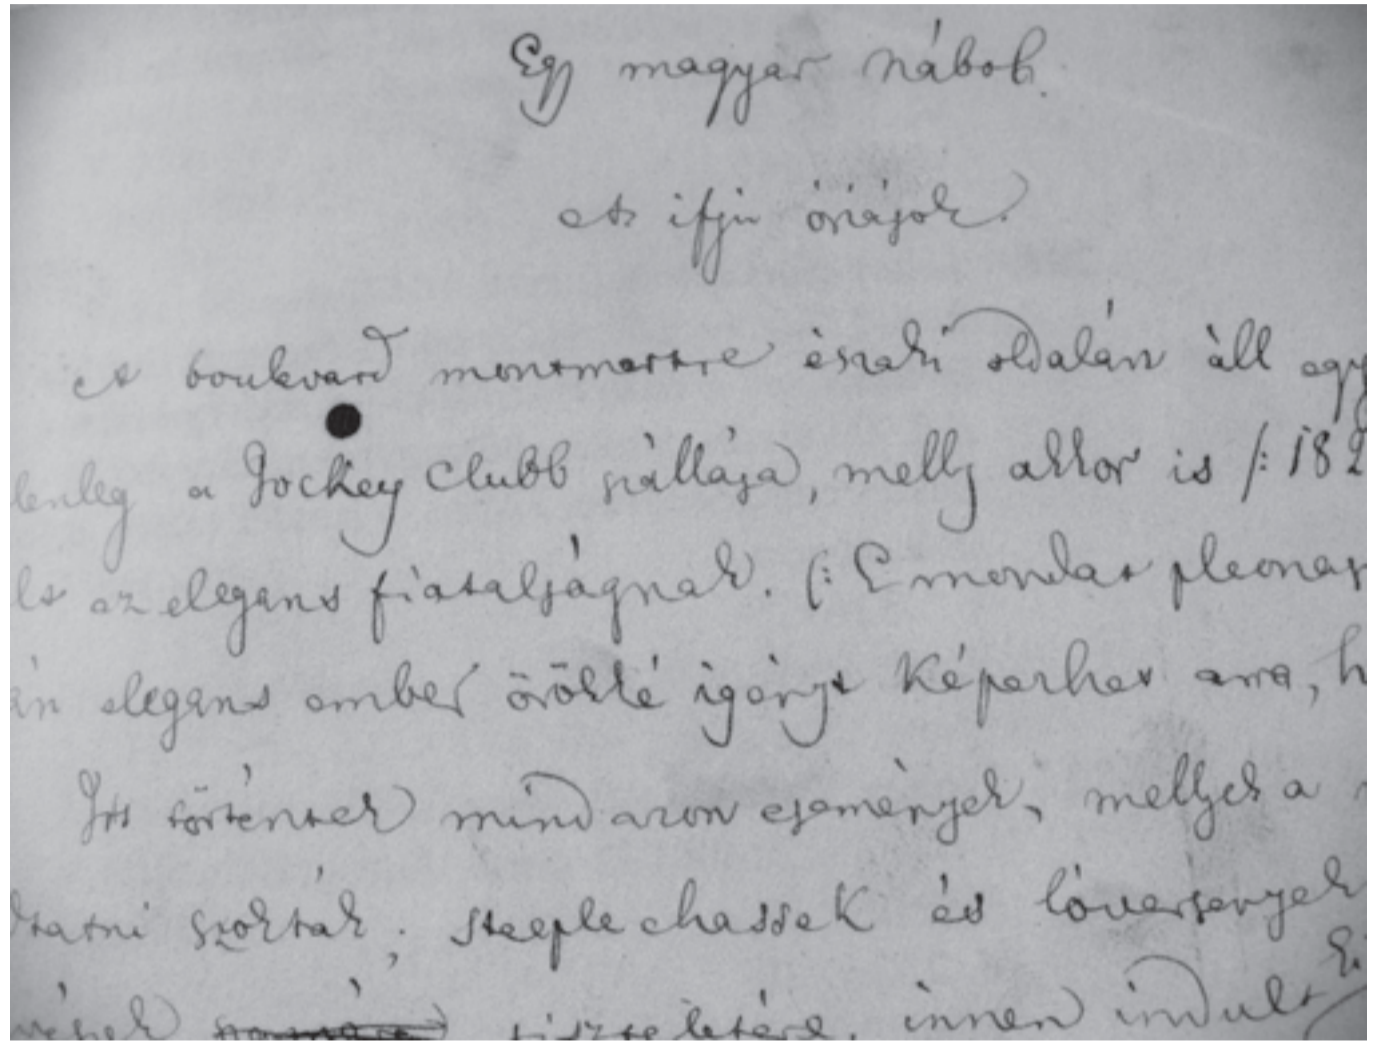 Egy magyar nábob.
Az ifju óriások.
A boulevard montmartre északi oldalán áll egy
lenleg a Jockey Clubb szállása, melly akkor is /: 182
lt az elegans fiatalságnak. (: E mondat pleonas
án elegans ember öröklé igényt képezhet arra, h
Itt történtek mind azon események, mellyek a
tatni szokták; steeple chassek és lóversenyek
vészek tiszteletére, innen indult